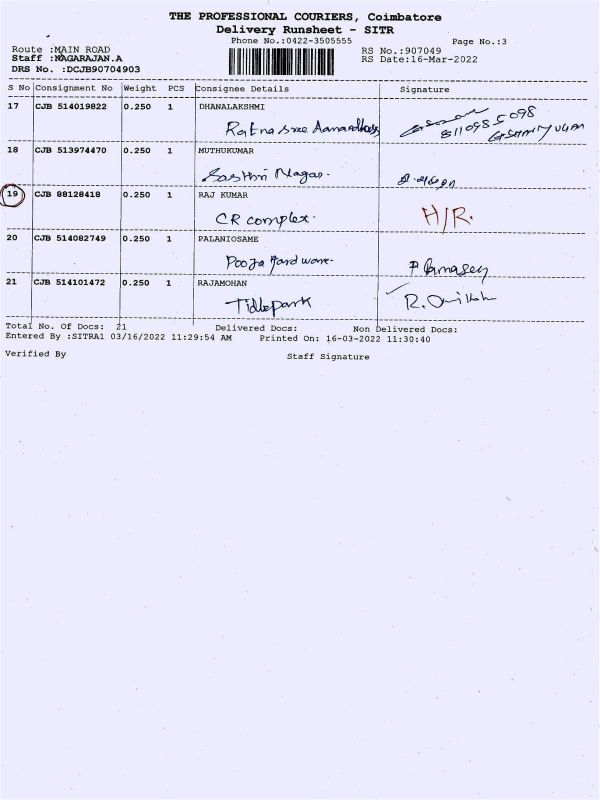 THE PROFESSIONAL COURIERS, Coimbatore
Delivery Runsheet - SITR
Phone No.:0422-3505555 Page No.:3
Route :MAIN ROAD RS No.:907049
Staff :NAGARAJAN.A RS Date:16-Mar-2022
DRS No. :DCJB90704903
S No Consignment No Weight PCS Consignee Details Signature
17 CJB 514019822 0.250 1 DHANALAKSHMI
Ratna sree 8110985098
18 CJB 513974470 0.250 1 MUTHUKUMAR
Sasthri Nagar.
19 CJB 88128418 0.250 1 RAJ KUMAR
CR complex. H/R.
20 CJB 514082749 0.250 1 PALANIOSAME
Pooja Hardware-
21 CJB 514101472 0.250 1 RAJAMOHAN
Tidlepark R.
Total No. Of Docs: 21 Delivered Docs: Non Delivered Docs:
Entered By :SITRA1 03/16/2022 11:29:54 AM Printed On: 16-03-2022 11:30:40
Verified By Staff Signature